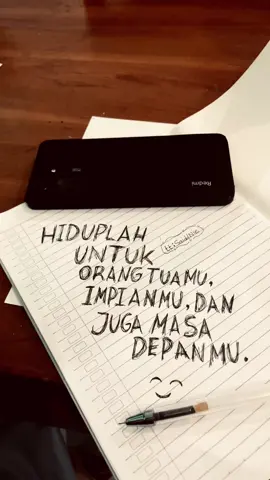 Redmi
HIDUPLAH
UNTUK
ORANG TUAMU,
IMPIANMU, DAN
JUGA MASA
DEPANMU.